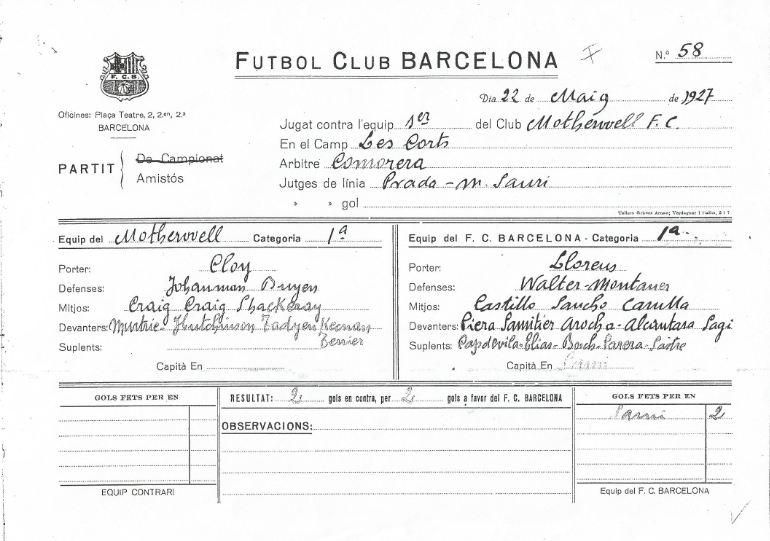 FUTBOL CLUB BARCELONA
N.º 58
F. C. B.
Oficines: Plaça Teatre, 2, 2.on, 2.a
BARCELONA
Dia 22 de Maig de 1927
Jugat contra l'equip 1er del Club Motherwell F. C.
En el Camp Les Corts
Arbitre Comorera
Jutges de línia Prada - M. Sauri
» » gol
PARTIT
De Campionat
Amistós
Equip del Motherwell Categoria 1ª
Porter: Cloy
Defenses: Johanman Buyen
Mitjos: Craig Craig Shackeasy
Devanters: Hutchinson Keenan
Ferrier
Suplents:
Capità En
Equip del F. C. BARCELONA - Categoria 1ª
Porter: Llorens
Defenses: Walter - Montaner
Mitjos: Castillo Sancho Carulla
Devanters: Piera Samitier Arocha - Alcantara Sagi
Suplents: Papdevila - Elias - Bosch - Parera - Sastre
Capità En Sami
GOLS FETS PER EN
EQUIP CONTRARI
RESULTAT: 2 gols en contra, per 2 gols a favor del F. C. BARCELONA
OBSERVACIONS:
GOLS FETS PER EN
Sami 2
Equip del F. C. BARCELONA